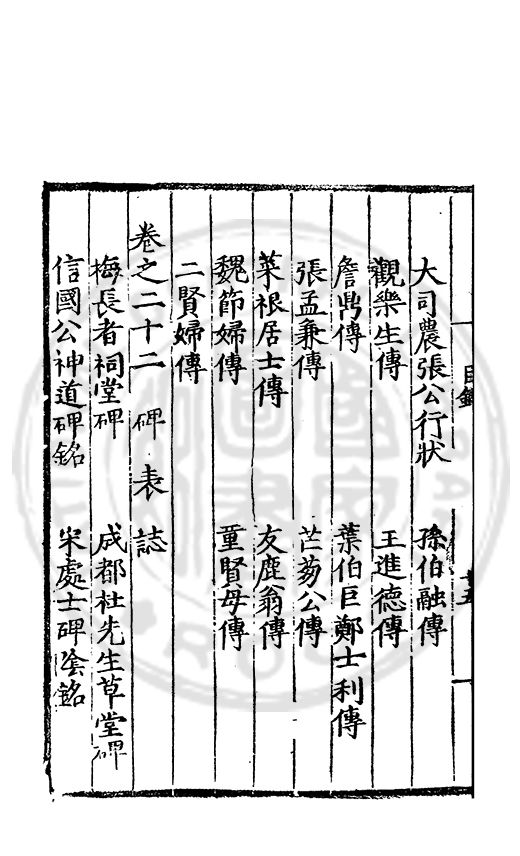 大司農張公行狀 孫伯融傳
觀樂生傳 王進德傳
詹鼎傳 葉伯巨鄭士利傳
張孟兼傳 芒芴公傳
菜根居士傳 友鹿翁傳
魏節婦傳 童賢母傳
二賢婦傳
卷之二十二 碑 表 誌
梅長者祠堂碑 成都杜先生草堂碑
信國公神道碑銘 宋處士碑陰銘